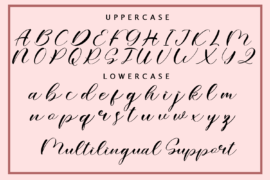 UPPERCASE
A B C D E F G H I J K L M
N O P Q R S T U V W X Y Z
LOWERCASE
a b c d e f g h i j k l m
n o p q r s t u v w x y z
Multilingual Support